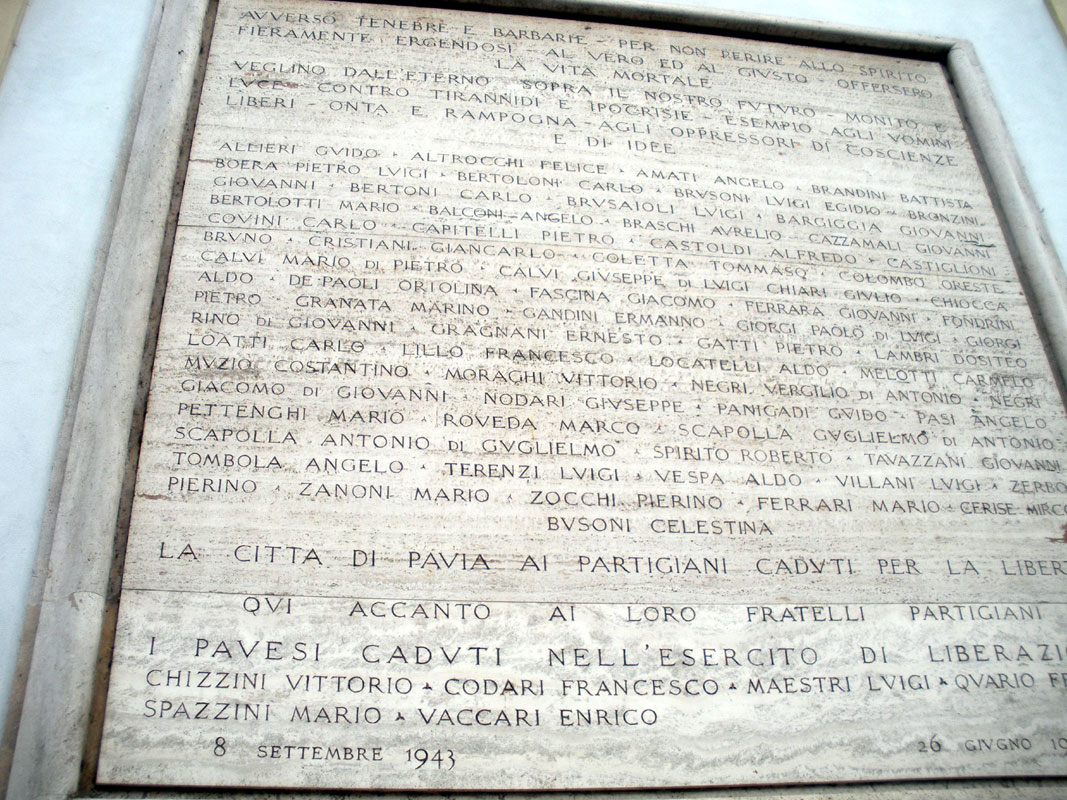 AVVERSO TENEBRE E BARBARIE - PER NON PERIRE ALLO SPIRITO
FIERAMENTE ERGENDOSI - AL VERO ED AL GIUSTO - OFFERSERO
LA VITA MORTALE
VEGLINO DALL'ETERNO SOPRA IL NOSTRO FVTVRO - MONITO E
LUCE - CONTRO TIRANNIDI E IPOCRISIE - ESEMPIO AGLI VOMINI
LIBERI - ONTA E RAMPOGNA - AGLI OPPRESSORI DI COSCIENZE
E DI IDEE
ALLIERI GVIDO · ALTROCCHI FELICE · AMATI ANGELO · BRANDINI BATTISTA
BOERA PIETRO LVIGI · BERTOLONI CARLO · BRVSONI LVIGI EGIDIO · BRONZINI
GIOVANNI · BERTONI CARLO · BRVSAIOLI LVIGI · BARGIGGIA GIOVANNI
BERTOLOTTI MARIO · BALCONI ANGELO · BRASCHI AVRELIO · CAZZAMALI GIOVANNI
COVINI CARLO · CAPITELLI PIETRO · CASTOLDI ALFREDO · CASTIGLIONI
BRVNO · CRISTIANI GIANCARLO · COLETTA TOMMASO · COLOMBO ORESTE
CALVI MARIO DI PIETRO · CALVI GIVSEPPE DI LVIGI CHIARI GIVLIO · CHIOCCA
ALDO · DE PAOLI ORTOLINA · FASCINA GIACOMO · FERRARA GIOVANNI · FONDRINI
PIETRO · GRANATA MARINO · GANDINI ERMANNO · GIORGI PAOLO DI LVIGI · GIORGI
RINO DI GIOVANNI · GRAGNANI ERNESTO · GATTI PIETRO · LAMBRI DOSITEO
LOATTI CARLO · LILLO FRANCESCO · LOCATELLI ALDO · MELOTTI CARMELO
MVZIO COSTANTINO · MORAGHI VITTORIO · NEGRI VERGILIO DI ANTONIO · NEGRI
GIACOMO DI GIOVANNI · NODARI GIVSEPPE · PANIGADI GVIDO · PASI ANGELO
PETTENGHI MARIO · ROVEDA MARCO · SCAPOLLA GVGLIELMO DI ANTONIO
SCAPOLLA ANTONIO DI GVGLIELMO · SPIRITO ROBERTO · TAVAZZANI GIOVANNI
TOMBOLA ANGELO · TERENZI LVIGI · VESPA ALDO · VILLANI LVIGI · ZERBO
PIERINO · ZANONI MARIO · ZOCCHI PIERINO · FERRARI MARIO · CERISE MIRCO
BVSONI CELESTINA
LA CITTA DI PAVIA AI PARTIGIANI CADVTI PER LA LIBERT
QVI ACCANTO AI LORO FRATELLI PARTIGIANI
I PAVESI CADVTI NELL'ESERCITO DI LIBERAZIO
CHIZZINI VITTORIO · CODARI FRANCESCO · MAESTRI LVIGI · QVARIO FE
SPAZZINI MARIO · VACCARI ENRICO
8 SETTEMBRE 1943 26 GIVGNO 19